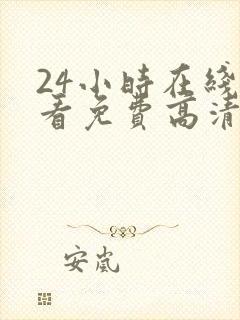 24小時在綫
看免費高清
安嵐